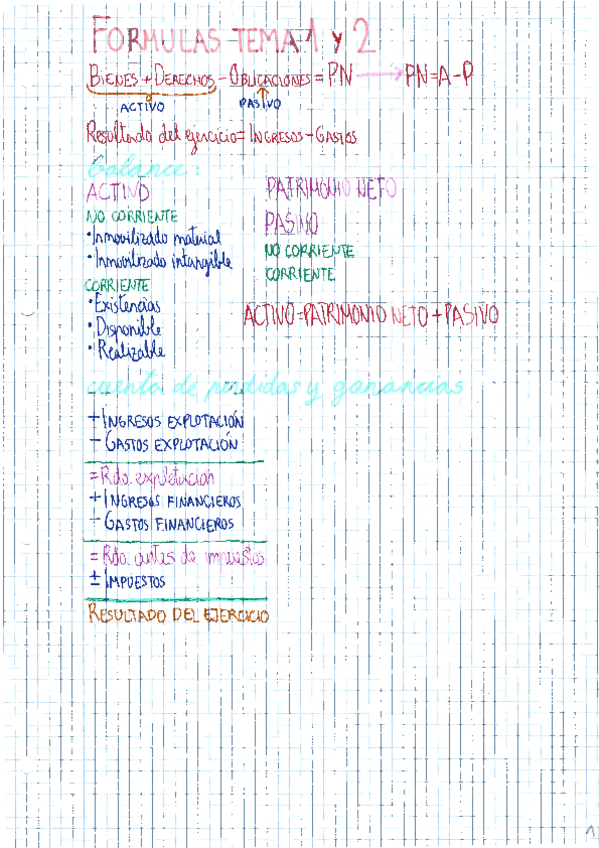 FORMULAS TEMA 1 y 2
BIENES + DERECHOS - OBLIGACIONES = PN → PN = A - P
ACTIVO PASIVO
Resultado del ejercicio = INGRESOS - GASTOS
balance:
ACTIVO
NO CORRIENTE
• Inmovilizado material
• Inmovilizado intangible
CORRIENTE
• Existencias
• Disponible
• Realizable
PATRIMONIO NETO
PASIVO
NO CORRIENTE
CORRIENTE
ACTIVO = PATRIMONIO NETO + PASIVO
cuenta de perdidas y ganancias
+ INGRESOS EXPLOTACIÓN
- GASTOS EXPLOTACIÓN
= Rdo. explotación
+ INGRESOS FINANCIEROS
- GASTOS FINANCIEROS
= Rdo. antes de impuestos
± IMPUESTOS
RESULTADO DEL EJERCICIO
1